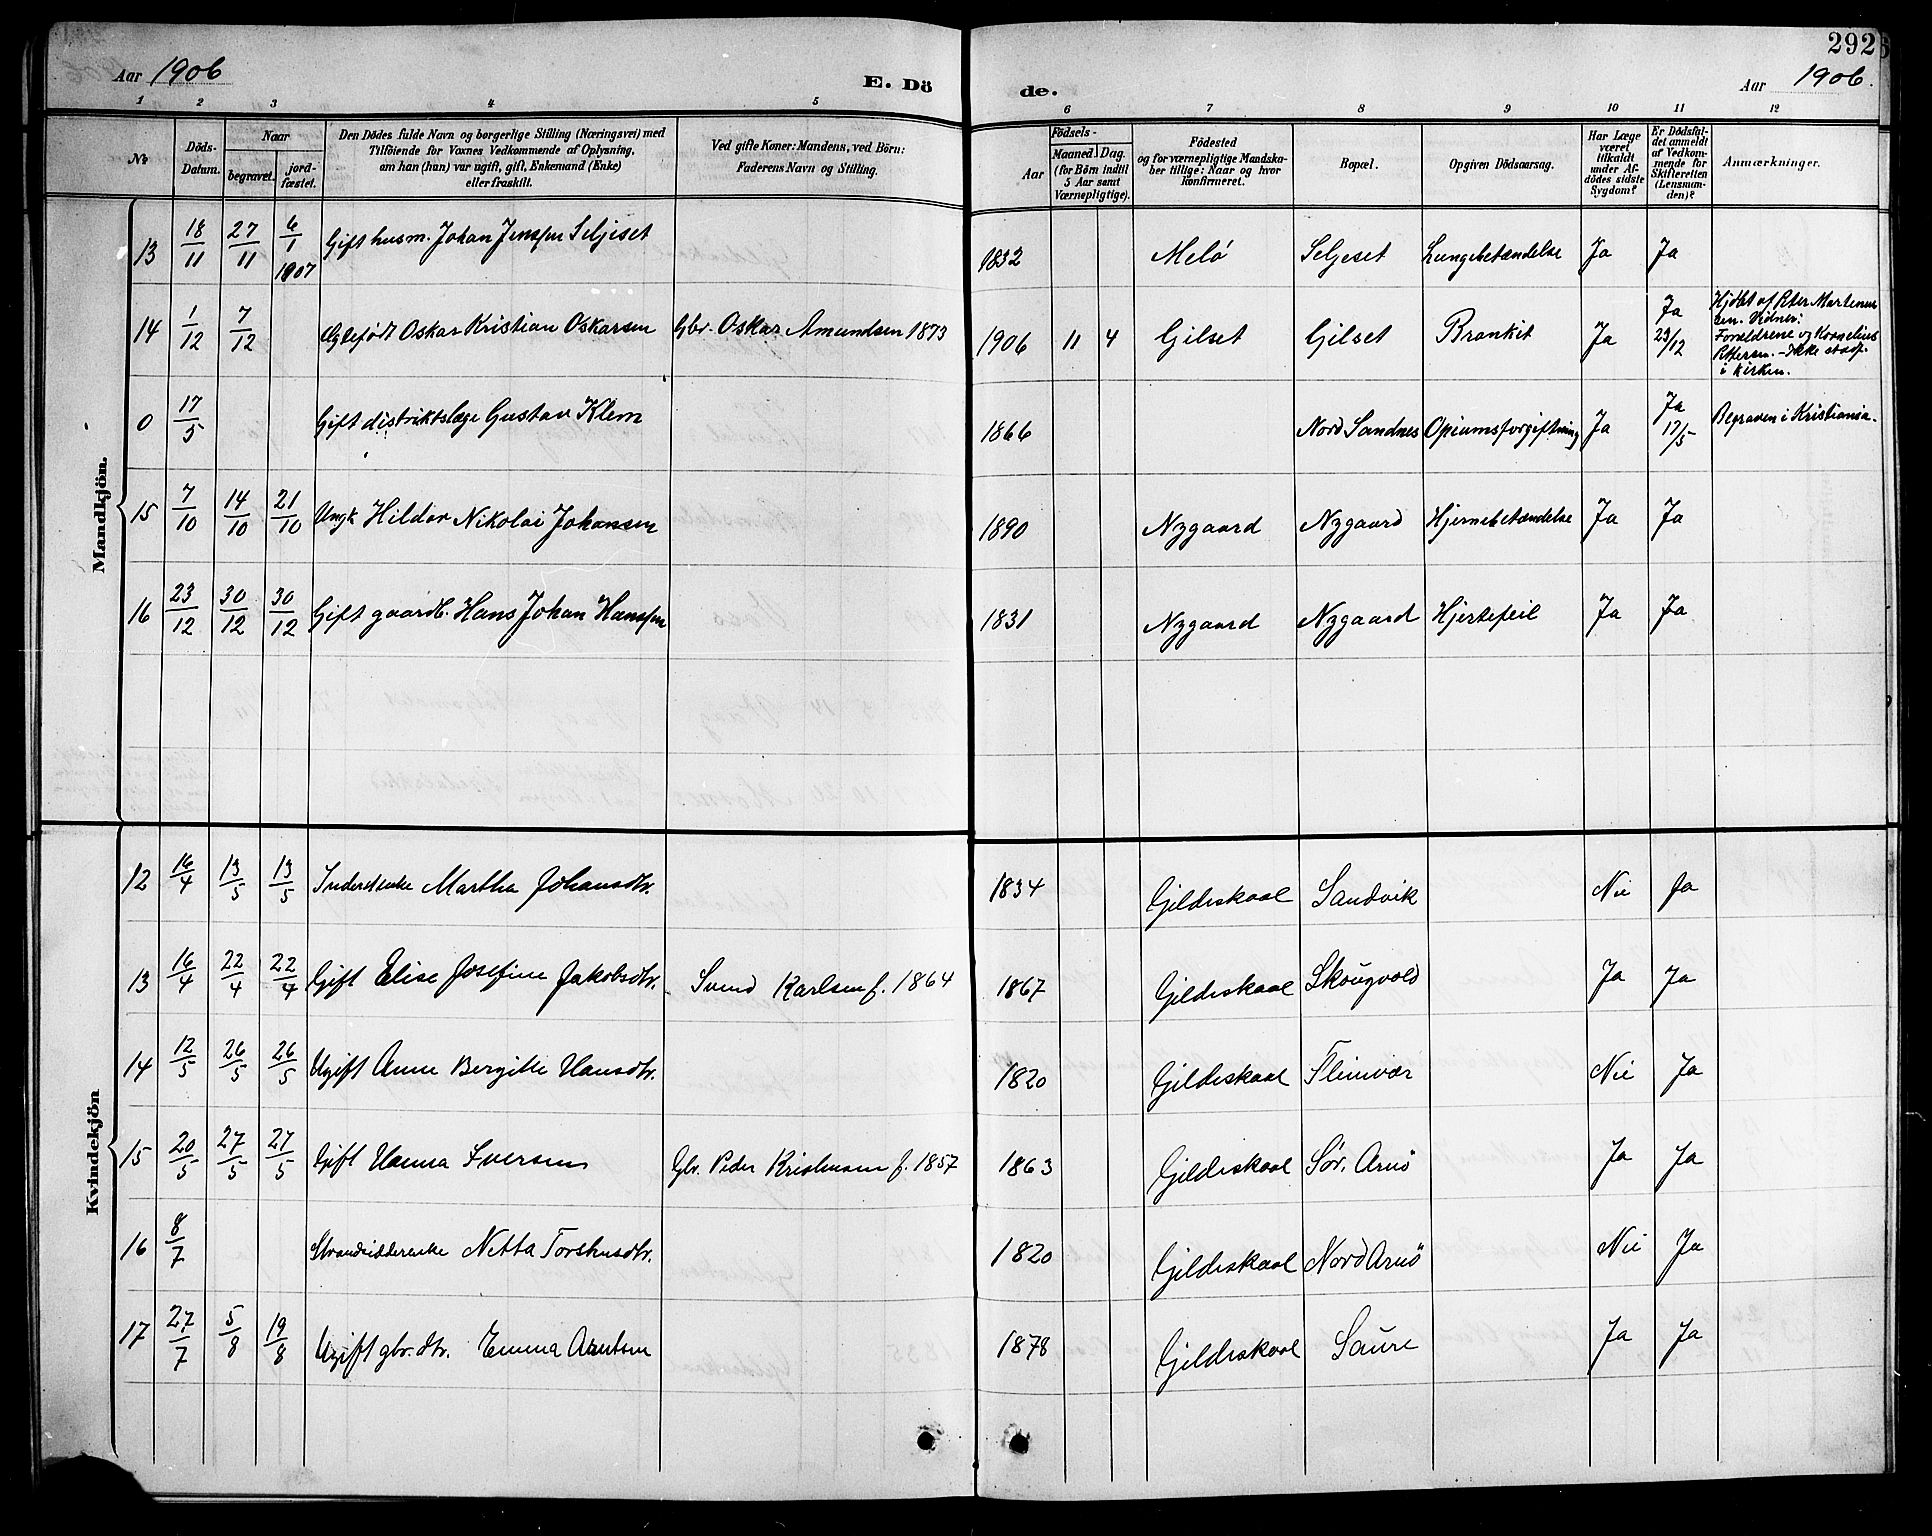 292
Aar 1906
E. Dö
de.
Aar 1906.
1 2 3 4 5 6 7 8 9 10 11 12
No
Döds-Datum.
Naar
begravet.
jord-fæstet.
Den Dödes fulde Navn og borgerlige Stilling (Næringsvei) med
Tilföiende for Voxnes Vedkommende af Oplysning,
om han (hun) var ugift, gift, Enkemand (Enke)
eller fraskilt.
Ved gifte Koner: Mandens, ved Börn:
Faderens Navn og Stilling.
Födsels-
Aar
Maaned. Dag.
(for Börn indtil
5 Aar samt
Værnepligtige).
Födested
og for værnepligtige Mandska-
ber tillige: Naar og hvor
konfirmeret.
Bopæl.
Opgiven Dödsaarsag.
Har Læge
været
tilkaldt
under Af-
dödes sidste
Sygdom?
Er Dödsfal-
det anmeldt
af Vedkom-
mende for
Skifteretten
(Lensman-
den)?
Anmærkninger.
Mandkjön.
13 18/11 27/11 6/1 1907 Gift husm. Johan Jenssen Seljeset 1832 Melö Seljeset Lungebetændelse Ja Ja
14 1/12 7/12 Ægtefödt Oskar Kristian Oskarsen Gbr. Oskar Amundsen 1873 1906 11 4 Gilset Gilset Bronkit Ja Ja 23/12 Hjdbt af Peter Martenus
sen. Vidner:
Forældrene og Kornelius
Petersen. - Ikke stadf.
i kirken.
0 17/5 Gift distriktslæge Gustav Klem 1866 Nord Sandnes Opiumsforgiftning Ja Ja 17/5 Begraven i Kristiania.
15 7/10 14/10 21/10 Ungk Hildor Nikolai Johansen 1890 Nygaard Nygaard Hjernebetændelse Ja Ja
16 23/12 30/12 30/12 Gift gaardb. Hans Johan Hanssen 1831 Nygaard Nygaard Hjertefeil Ja Ja
Kvindekjön
12 16/4 13/5 13/5 Inderstenke Martha Johansdtr. 1834 Gildeskaal Sandvik Nei Ja
13 16/4 22/4 22/4 Gift Elise Josefine Jakobsdtr. Svend Karlsen f. 1864 1867 Gildeskaal Skougvold Ja Ja
14 12/5 26/5 26/5 Ugift Anne Bergitte Hansdtr. 1820 Gildeskaal Fleinvær Nei Ja
15 20/5 27/5 27/5 Gift Hanna Iversen Gbr. Peder Kristensen f. 1857 1863 Gildeskaal Sör. Arnö Ja Ja
16 8/7 Strandsidderenke Netta Torstensdtr. 1820 Gildeskaal Nord Arnö Nei Ja
17 27/7 5/8 19/8 Ugift gbr. dtr. Emma Arntsen 1878 Gildeskaal Saure Ja Ja